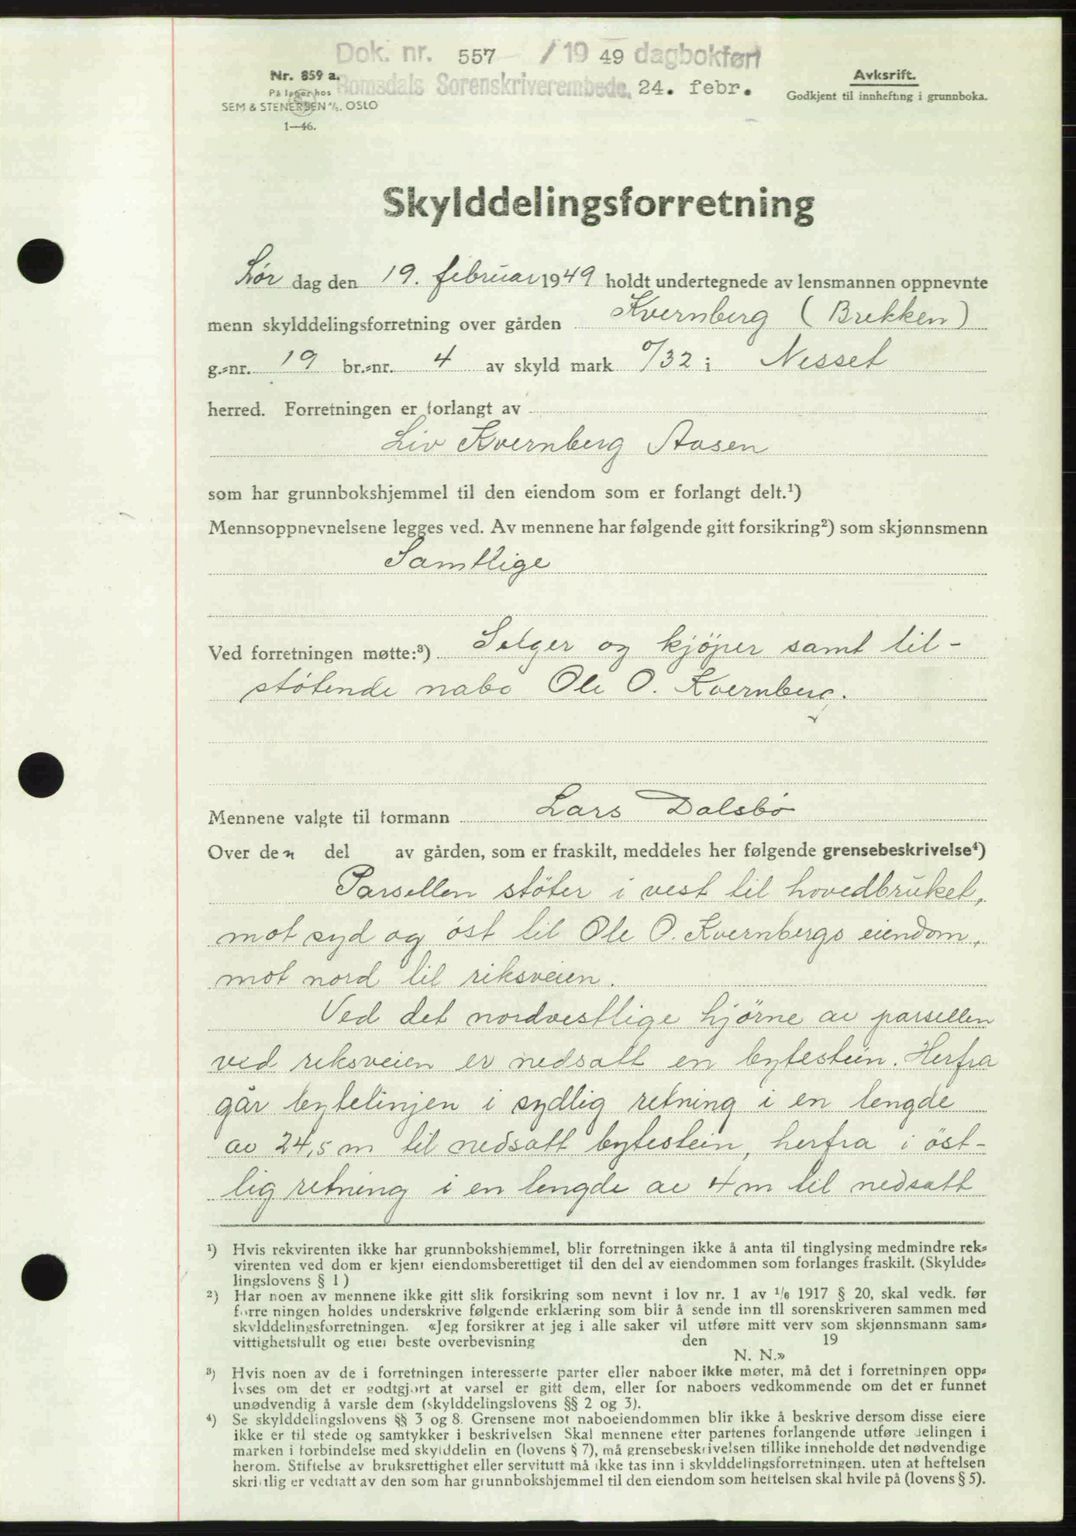 Dok. nr. 557 / 1949 dagbokført
Romsdals Sorenskriverembede, 24. febr.
Nr. 859 a.
På lager hos
SEM & STENERSEN A/S. OSLO
1—46.
Avskrift.
Godkjent til innhefting i grunnboka.
Skylddelingsforretning
Lør dag den 19. februar 1949 holdt undertegnede av lensmannen oppnevnte
menn skylddelingsforretning over gården Kvernberg (Brekken)
g.-nr. 19 br.-nr. 4 av skyld mark 0/32 i Nesset
herred. Forretningen er forlangt av
Liv Kvernberg Aasen
som har grunnbokshjemmel til den eiendom som er forlangt delt.¹)
Mennsoppnevnelsene legges ved. Av mennene har følgende gitt forsikring²) som skjønnsmenn
Samtlige
Ved forretningen møtte:³) Selger og kjöper samt til-
støtende nabo Ole O. Kvernberg.
Mennene valgte til formann Lars Dalsbö
Over den del av gården, som er fraskilt, meddeles her følgende grensebeskrivelse⁴)
Parsellen støter i vest til hovedbruket,
mot syd og öst til Ole O. Kvernbergs eiendom,
mot nord til riksveien.
Ved det nordvestlige hjörne av parsellen
ved riksveien er nedsatt en bytestein. Herfra
går bytelinjen i sydlig retning i en lengde
av 24,5 m til nedsatt bytestein, herfra i öst-
lig retning i en lengde av 4 m til nedsatt
¹) Hvis rekvirenten ikke har grunnbokshjemmel, blir forretningen ikke å anta til tinglysing medmindre rek-
virenten ved dom er kjent eiendomsberettiget til den del av eiendommen som forlanges fraskilt. (Skyldde-
lingslovens § 1)
²) Har noen av mennene ikke gitt slik forsikring som nevnt i lov nr. 1 av 1/6 1917 § 20, skal vedk. før
forretningen holdes underskrive følgende erklæring som blir å sende inn til sorenskriveren sammen med
skylddelingsforretningen. «Jeg forsikrer at jeg i alle saker vil utføre mitt verv som skjønnsmann sam-
vittighetsfullt og etter beste overbevisning den 19
N. N.»
³) Hvis noen av de i forretningen interesserte parter eller naboer ikke møter, må det i forretningen opp-
lyses om det er godtgjort at varsel er gitt dem, eller for naboers vedkommende om det er funnet
unødvendig å varsle dem (skylddelingslovens §§ 2 og 3).
⁴) Se skylddelingslovens §§ 3 og 8. Grensene mot naboeiendommen blir ikke å beskrive dersom disse eiere
ikke er til stede og samtykker i beskrivelsen Skal mennene etter partenes forlangende utføre delingen i
marken i forbindelse med skylddelingen (lovens § 7), må grensebeskrivelsen tillike inneholde det nødvendige
herom. Stiftelse av bruksrettighet eller servitutt må ikke tas inn i skylddelingsforretningen. uten at heftelsen
skriftlig er vedtatt av den som har grunnbokshjemmel til den eiendom som heftelsen skal hvile på (lovens § 5).